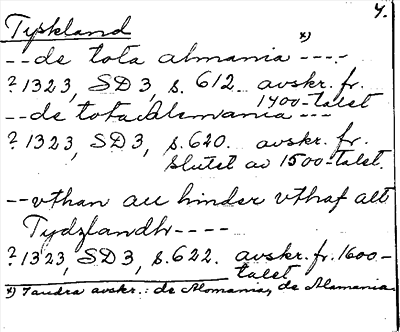 4.
Tyskland
--de tota almania x) ----
? 1323, SD 3, s. 612. avskr. fr.
1400-talet
--de tota Alemania ---
? 1323, SD 3, s. 620. avskr. fr.
slutet av 1500-talet.
--vthan au hinder vthaf alt
Tydzlandh----
? 1323, SD 3, s. 622. avskr. fr. 1600-
talet
x) I andra avskr.: de Alomania, de Alamania.